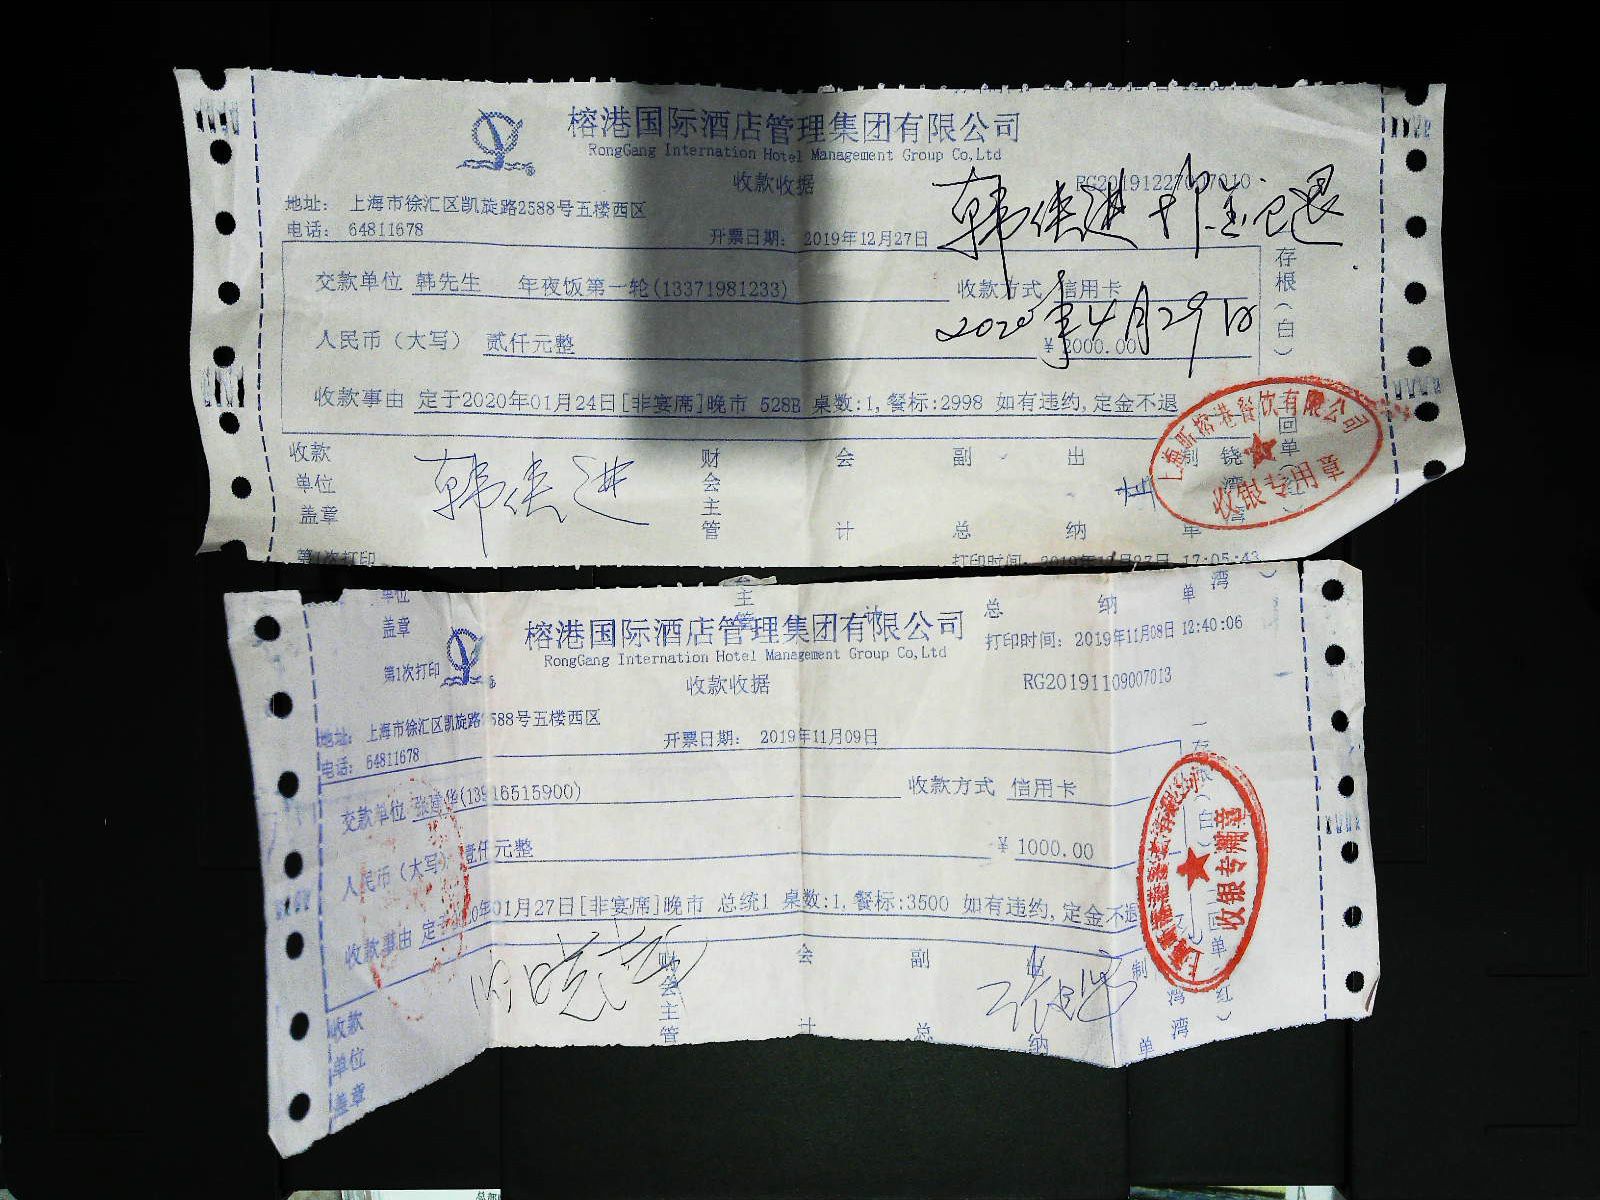 榕港国际酒店管理集团有限公司
RongGang Internation Hotel Management Group Co,Ltd
收款收据
RG20191227007010
地址: 上海市徐汇区凯旋路2588号五楼西区
电话: 64811678
开票日期: 2019年12月27日
交款单位 韩先生 年夜饭第一轮(13371981233)
收款方式 信用卡
2020年4月29日
人民币(大写) 贰仟元整
¥ 2000.00
收款事由 定于2020年01月24日[非宴席]晚市 528B 桌数:1,餐标:2998 如有违约,定金不退
存根(白)
回单
收款单位盖章
财会主管
会计
副总
出纳
制单
收银专用章
第1次打印
打印时间: 2019年12月27日 17:05:43
单位
盖章
主管
计
总
纳
单
湾
第1次打印
打印时间: 2019年11月08日 12:40:06
榕港国际酒店管理集团有限公司
RongGang Internation Hotel Management Group Co,Ltd
收款收据
RG20191109007013
地址: 上海市徐汇区凯旋路2588号五楼西区
电话: 64811678
开票日期: 2019年11月09日
交款单位 张建华(13916515900)
收款方式 信用卡
人民币(大写) 壹仟元整
¥ 1000.00
收款事由 定于2020年01月27日[非宴席]晚市 总统1 桌数:1,餐标:3500 如有违约,定金不退
收银专用章
收款单位盖章
财会主管
会计
副总
出纳
制单